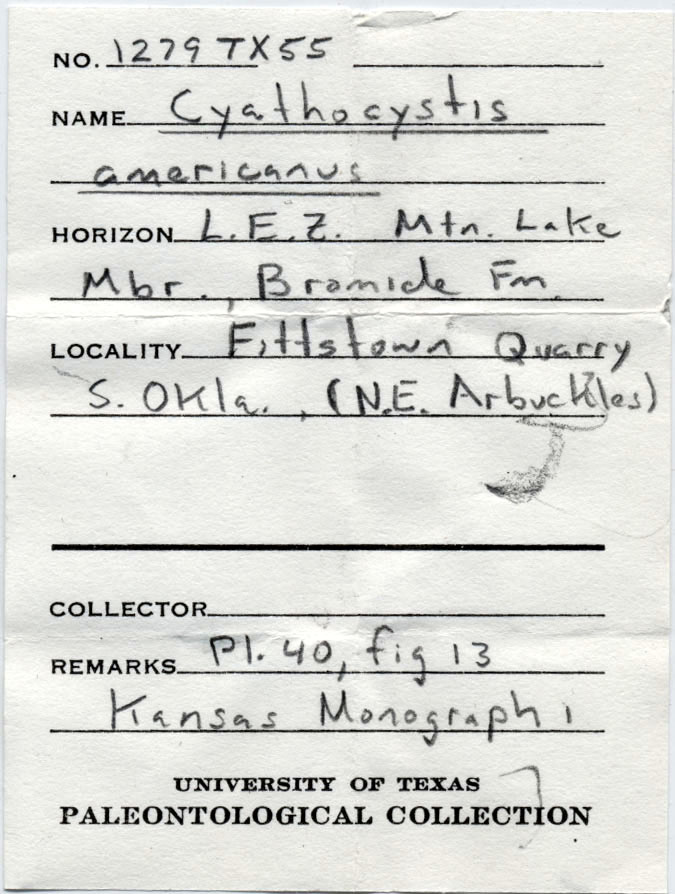 NO. 1279TX55
NAME Cyathocystis
americanus
HORIZON L.E.Z. Mtn. Lake
Mbr., Bromide Fm.
LOCALITY Fittstown Quarry
S. Okla., (N.E. Arbuckles)
COLLECTOR
REMARKS Pl. 40, fig 13
Kansas Monograph 1
UNIVERSITY OF TEXAS
PALEONTOLOGICAL COLLECTION